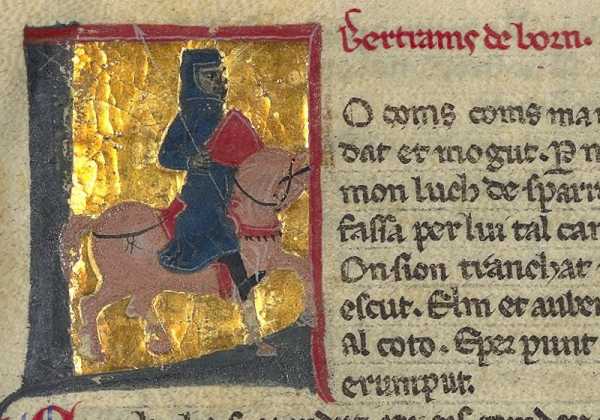 Bertrams de born.
Lo coms coms ma
dat et mogut. Per
mon luch de sparr
fassa per lui tal can
On sion tranchat
escut. Elm et auber
Al coto. Esper punt
erumput.